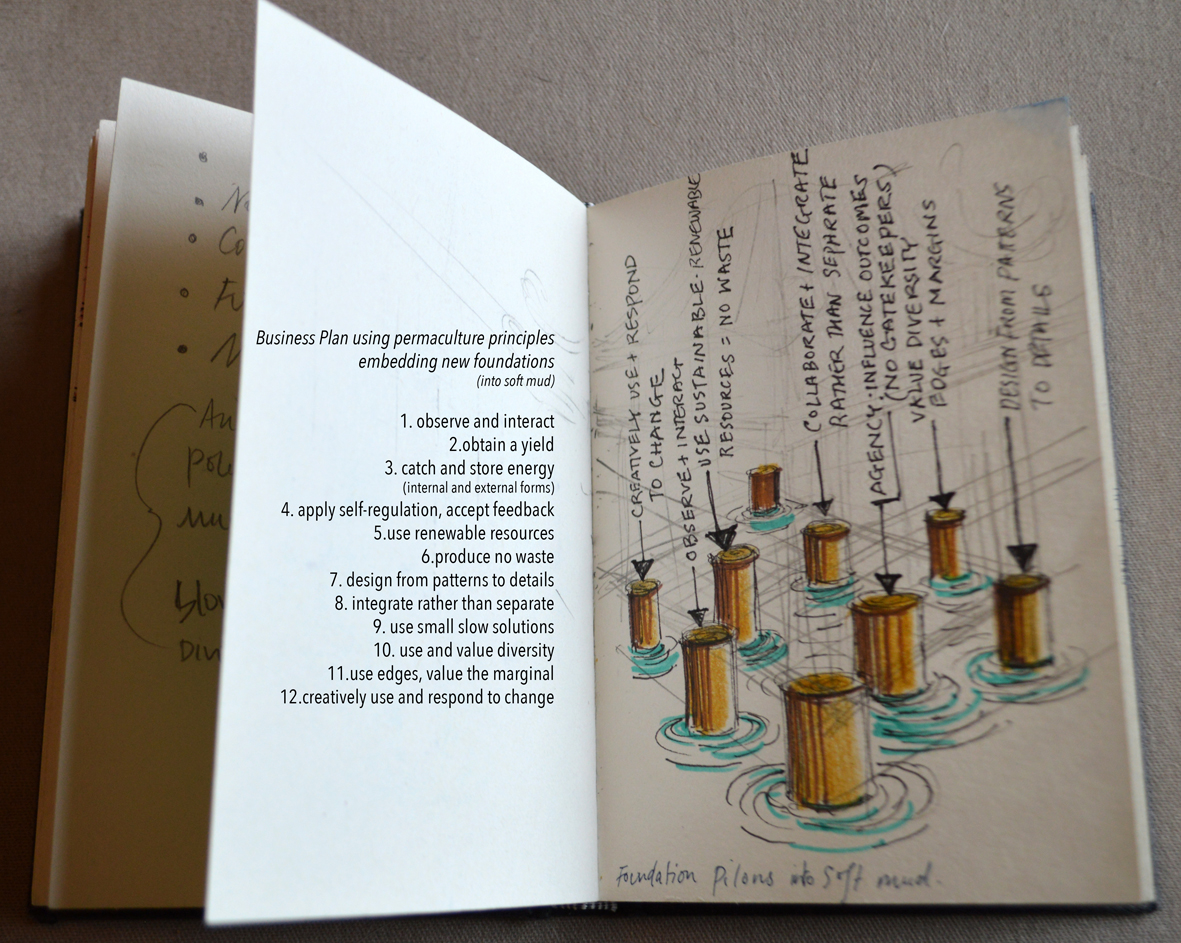 Business Plan using permaculture principles
embedding new foundations
(into soft mud)
1. observe and interact
2.obtain a yield
3. catch and store energy
(internal and external forms)
4. apply self-regulation, accept feedback
5.use renewable resources
6.produce no waste
7. design from patterns to details
8. integrate rather than separate
9. use small slow solutions
10. use and value diversity
11.use edges, value the marginal
12.creatively use and respond to change
CREATIVELY USE + RESPOND
TO CHANGE
OBSERVE + INTERACT
USE SUSTAINABLE-RENEWABLE
RESOURCES = NO WASTE
COLLABORATE + INTEGRATE
RATHER THAN SEPHRATE
AGENCY: INFLUENCE OUTCOMES
(NO GATEKEEPERS)
VALUE DIVERSITY
EDGES + MARGINS
DESIGN FROM PATTERNS
TO DETAILS
Foundation Pilons into Soft mud.